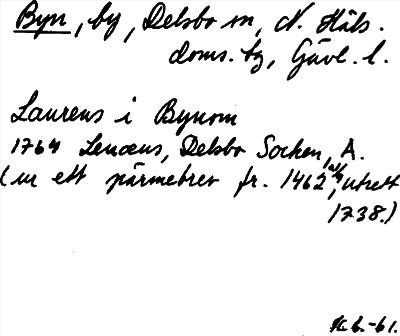 Byn, by, Delsbo sn, N. Häls.
doms. tg, Gävl. l.
Laurens i Bynom
1764 Lenæus, Delsbo Socken, A.
(ur ett pärmebrev fr. 1462, utrett
1738.)